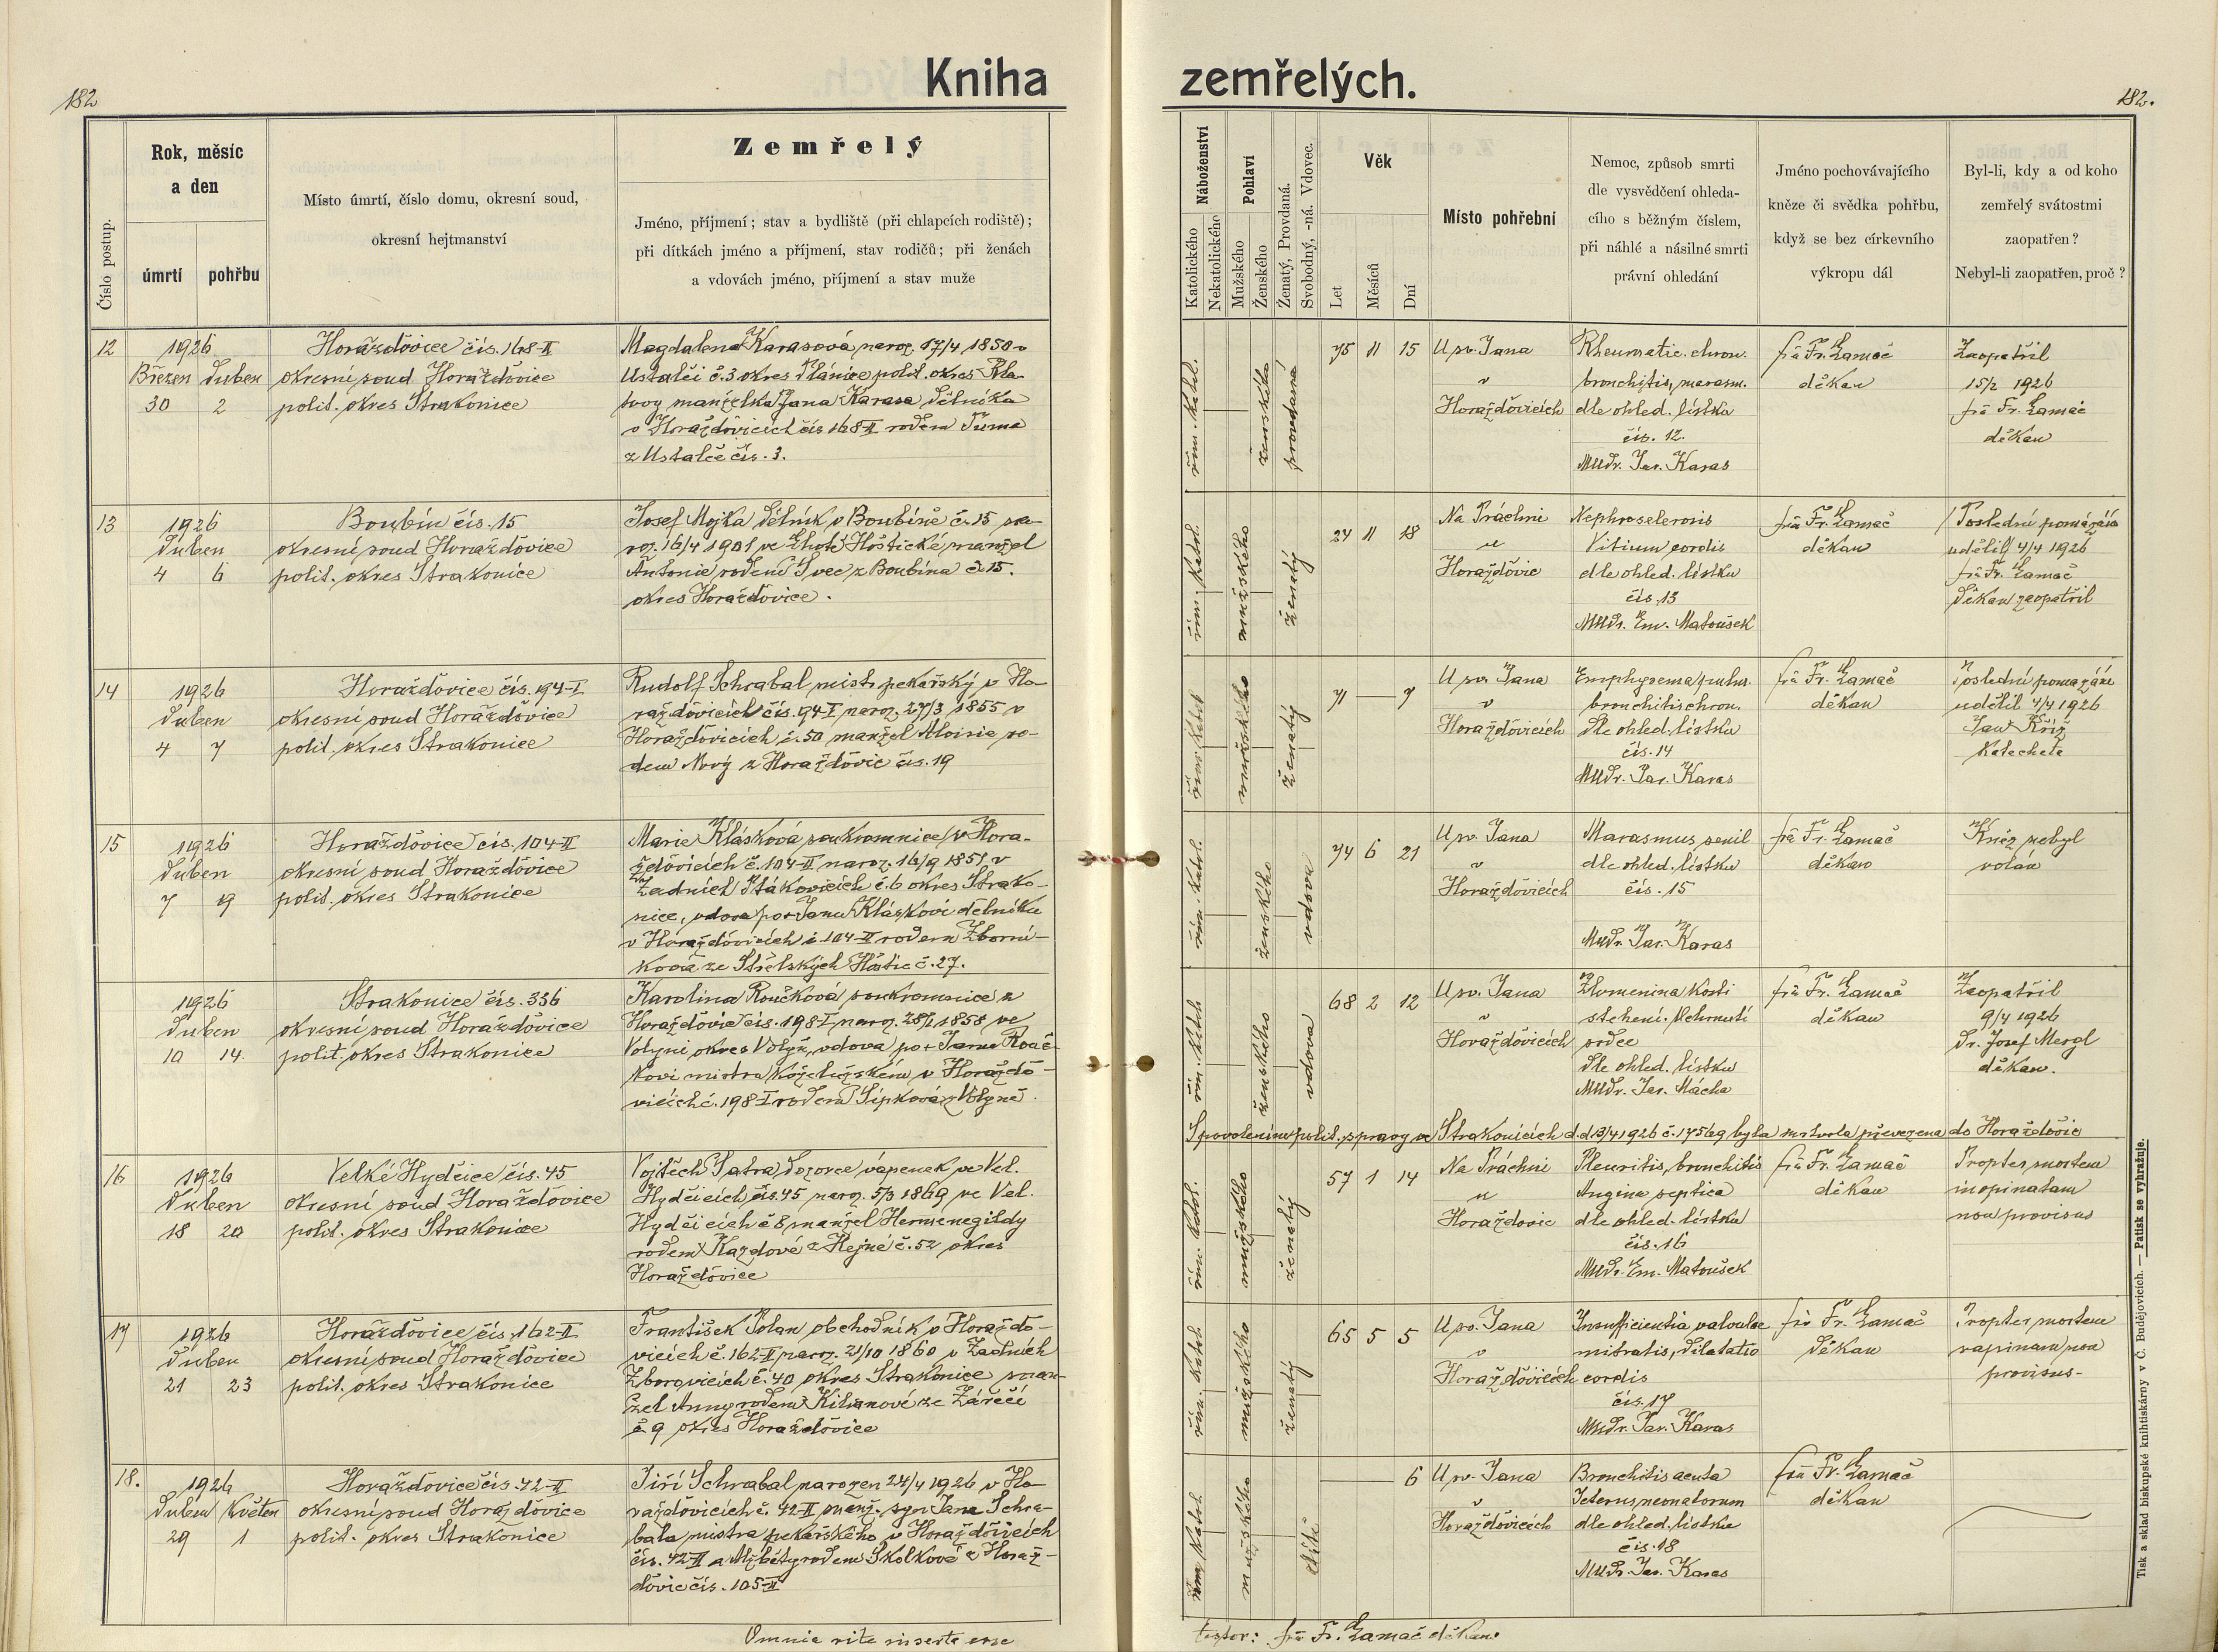 182
Kniha
zemřelých.
182.
Číslo postup.
Rok, měsíc
a den
úmrtí
pohřbu
Místo úmrtí, číslo domu, okresní soud,
okresní hejtmanství
Zemřelý
Jméno, příjmení; stav a bydliště (při chlapcích rodiště);
při dítkách jméno a příjmení, stav rodičů; při ženách
a vdovách jméno, příjmení a stav muže
Náboženství
Katolického
Nekatolického
Pohlaví
Mužského
Ženského
Ženatý, Provdaná.
Svobodný, -ná. Vdovec.
Věk
Let
Měsíců
Dní
Místo pohřební
Nemoc, způsob smrti
dle vysvědčení ohleda-
cího s běžným číslem,
při náhlé a násilné smrti
právní ohledání
Jméno pochovávajícího
kněze či svědka pohřbu,
když se bez církevního
výkropu dál
Byl-li, kdy a od koho
zemřelý svátostmi
zaopatřen?
Nebyl-li zaopatřen, proč?
12
1926
Březen Duben
30 2
Horažďovice čís. 168-II
okresní soud Horažďovice
polit. okres Strakonice
Magdalena Karasová naroz. 17/4 1850 v
Ustalči č. 3 okres Plánice polit. okres Kla-
tovy manželka Jana Karasa dělníka
v Horažďovicích čís 168-II rodem Tůma
z Ustalče čís. 3.
řím. katol.
ženského
provdaná
75 11 15
U sv. Jana
v
Horažďovicích
Rheumatic. chron.
bronchitis, marasm.
dle ohled. lístku
čís. 12.
MUDr. Jar. Karas
fra Fr. Lamač
děkan
Zaopatřil
15/2 1926
fra Fr. Lamač
děkan
13
1926
Duben
4 6
Boubín čís. 15
okresní soud Horažďovice
polit. okres Strakonice
Josef Mojka dělník v Boubíně č. 15 na-
roz. 16/4 1901 ve Lhotě Hoštické manžel
Antonie rodem Švec z Boubína č. 15.
okres Horažďovice.
řím. katol.
mužského
ženatý
24 11 18
Na Práchni
u
Horažďovic
Nephrosclerosis
Vitium cordis
dle ohled. lístku
čís. 13
MUDr. Em. Matoušek
fra Fr. Lamač
děkan
Poslední pomazání
udělil 4/4 1926
fra Fr. Lamač
děkan zaopatřil
14
1926
Duben
4 7
Horažďovice čís. 94-I
okresní soud Horažďovice
polit. okres Strakonice
Rudolf Schrabal mistr pekařský v Ho-
ražďovicích čís. 94-I naroz. 27/3 1855 v
Horažďovicích č. 50 manžel Aloisie ro-
dem Nový z Horažďovic čís. 19
řím. katol
mužského
ženatý
71 — 7
U sv. Jana
v
Horažďovicích
Emphysema pulm.
bronchitis chron.
dle ohled. lístku
čís. 14
MUDr. Jar. Karas
fra Fr. Lamač
děkan
Poslední pomazání
udělil 4/4 1926
Jan Kříž
katecheta
15
1926
Duben
7 19
Horažďovice čís. 104-II
okresní soud Horažďovice
polit. okres Strakonice
Marie Klásková soukromnice v Hora-
žďovicích č. 104-II naroz. 16/9 1851 v
Zadních Ptákovicích č. 6 okres Strako-
nice, vdova po + Janu Kláskovi dělníku
v Horažďovicích č. 104-II rodem Zborní-
ková ze Střelských Hoštic č. 27.
řím. katol.
ženského
vdova
74 6 21
U sv. Jana
v
Horažďovicích
Marasmus senil
dle ohled. lístku
čís. 15
MUDr. Jar. Karas
fra Fr. Lamač
děkan
Kněz nebyl
volán
1926
Duben
10 14.
Strakonice čís. 336
okresní soud Horažďovice
polit. okres Strakonice
Karolina Roučková soukromnice z
Horažďovic čís. 198-I naroz. 28/1 1858 ve
Volyni okres Volyň, vdova po + Janu Rouč-
kovi mistra koželužském v Horažďo-
vicích č. 198-I rodem Šípková z Volyně.
řím. katol.
ženského
vdova
68 2 12
U sv. Jana
v
Horažďovicích
Zlomenina kosti
stehení. Ochrnutí
srdce
dle ohled. lístku
MUDr. Jar. Mácha
fra Fr. Lamač
děkan
Zaopatřil
9/4 1926
Dr. Josef Mergl
děkan.
S povolením polit. správy ve Strakonicích d.d 13/4 1926 č. 17569 byla mrtvola převezena do Horažďovic
16
1926
Duben
18 20
Velké Hydčice čís. 45
okresní soud Horažďovice
polit. okres Strakonice
Vojtěch Šatra dozorce vápenek ve Vel.
Hydčicích čís. 45 naroz. 5/3 1869 ve Vel.
Hydčicích č 8 manžel Hermenegildy
rodem Kazdové z Hejné č. 52 okres
Horažďovice
řím. katol.
mužského
ženatý
57 1 14
Na Práchni
u
Horažďovic
Pleuritis, bronchitis
Angina septica
dle ohled. lístku
čís. 16
MUDr. Em. Matoušek
fra Fr. Lamač
děkan
Propter mortem
inopinatam
non provisus
17
1926
Duben
21 23
Horažďovice čís. 162-II
okresní soud Horažďovice
polit. okres Strakonice
František Polan obchodník v Horažďo-
vicích č. 162-II naroz. 21/10 1860 v Zadních
Zborovicích č. 40 okres Strakonice man-
žel Anny rodem Kilianové ze Zářečí
č 9 okres Horažďovice
řím. katol.
mužského
ženatý
65 5 5
U sv. Jana
v
Horažďovicích
Insufficientia valvulae
mitralis, dilatatio
cordis
čís. 17
MUDr. Jar. Karas
fra Fr. Lamač
děkan
Propter mortem
rapinam non
provisus-
18.
1926
Duben Květen
29 1
Horažďovice čís. 42-II
okresní soud Horažďovice
polit. okres Strakonice
Jiří Schrabal narozen 24/4 1926 v Ho-
ražďovicích č. 42-II manž. syn Jana Schra-
bala mistra pekařského v Horažďovicích
čís. 42-II a Alžběty rodem Skolkové z Horaž-
ďovic čís. 105-II
řím. katol.
mužského
dítě
6
U sv. Jana
v
Horažďovicích
Bronchitis acuta
Icterus neonatorum
dle ohled. lístku
čís. 18
MUDr. Jar. Karas
fra Fr. Lamač
děkan
Omnia rite inserta esse
testor: fra Fr. Lamač děkan.
Tisk a sklad biskupské knihtiskárny v Č. Budějovicích. — Patisk se vyhražuje.